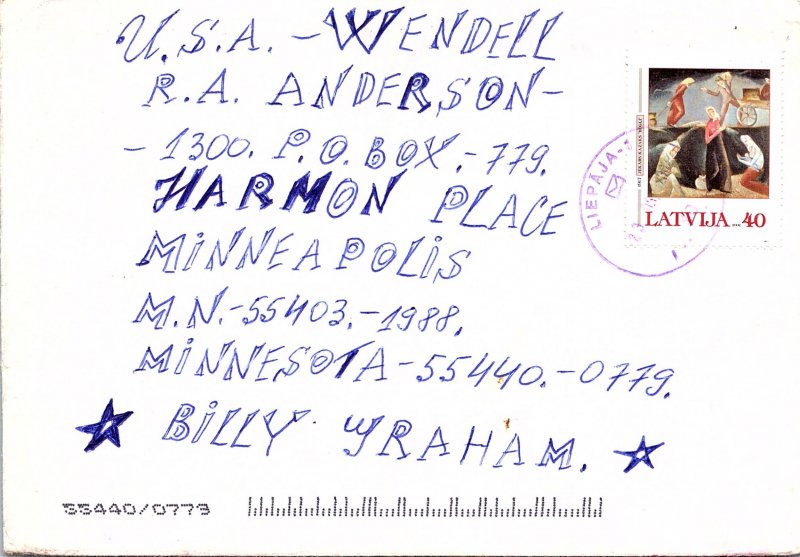 U.S.A. – WENDELL
R.A. ANDERSON –
– 1300. P.O. BOX. – 779.
HARMON PLACE
MINNEAPOLIS
M.N. – 55403. – 1988.
MINNESOTA – 55440. – 0779.
★ BILLY GRAHAM. ★
LATVIJA 40
LIEPĀJA
55440/0779